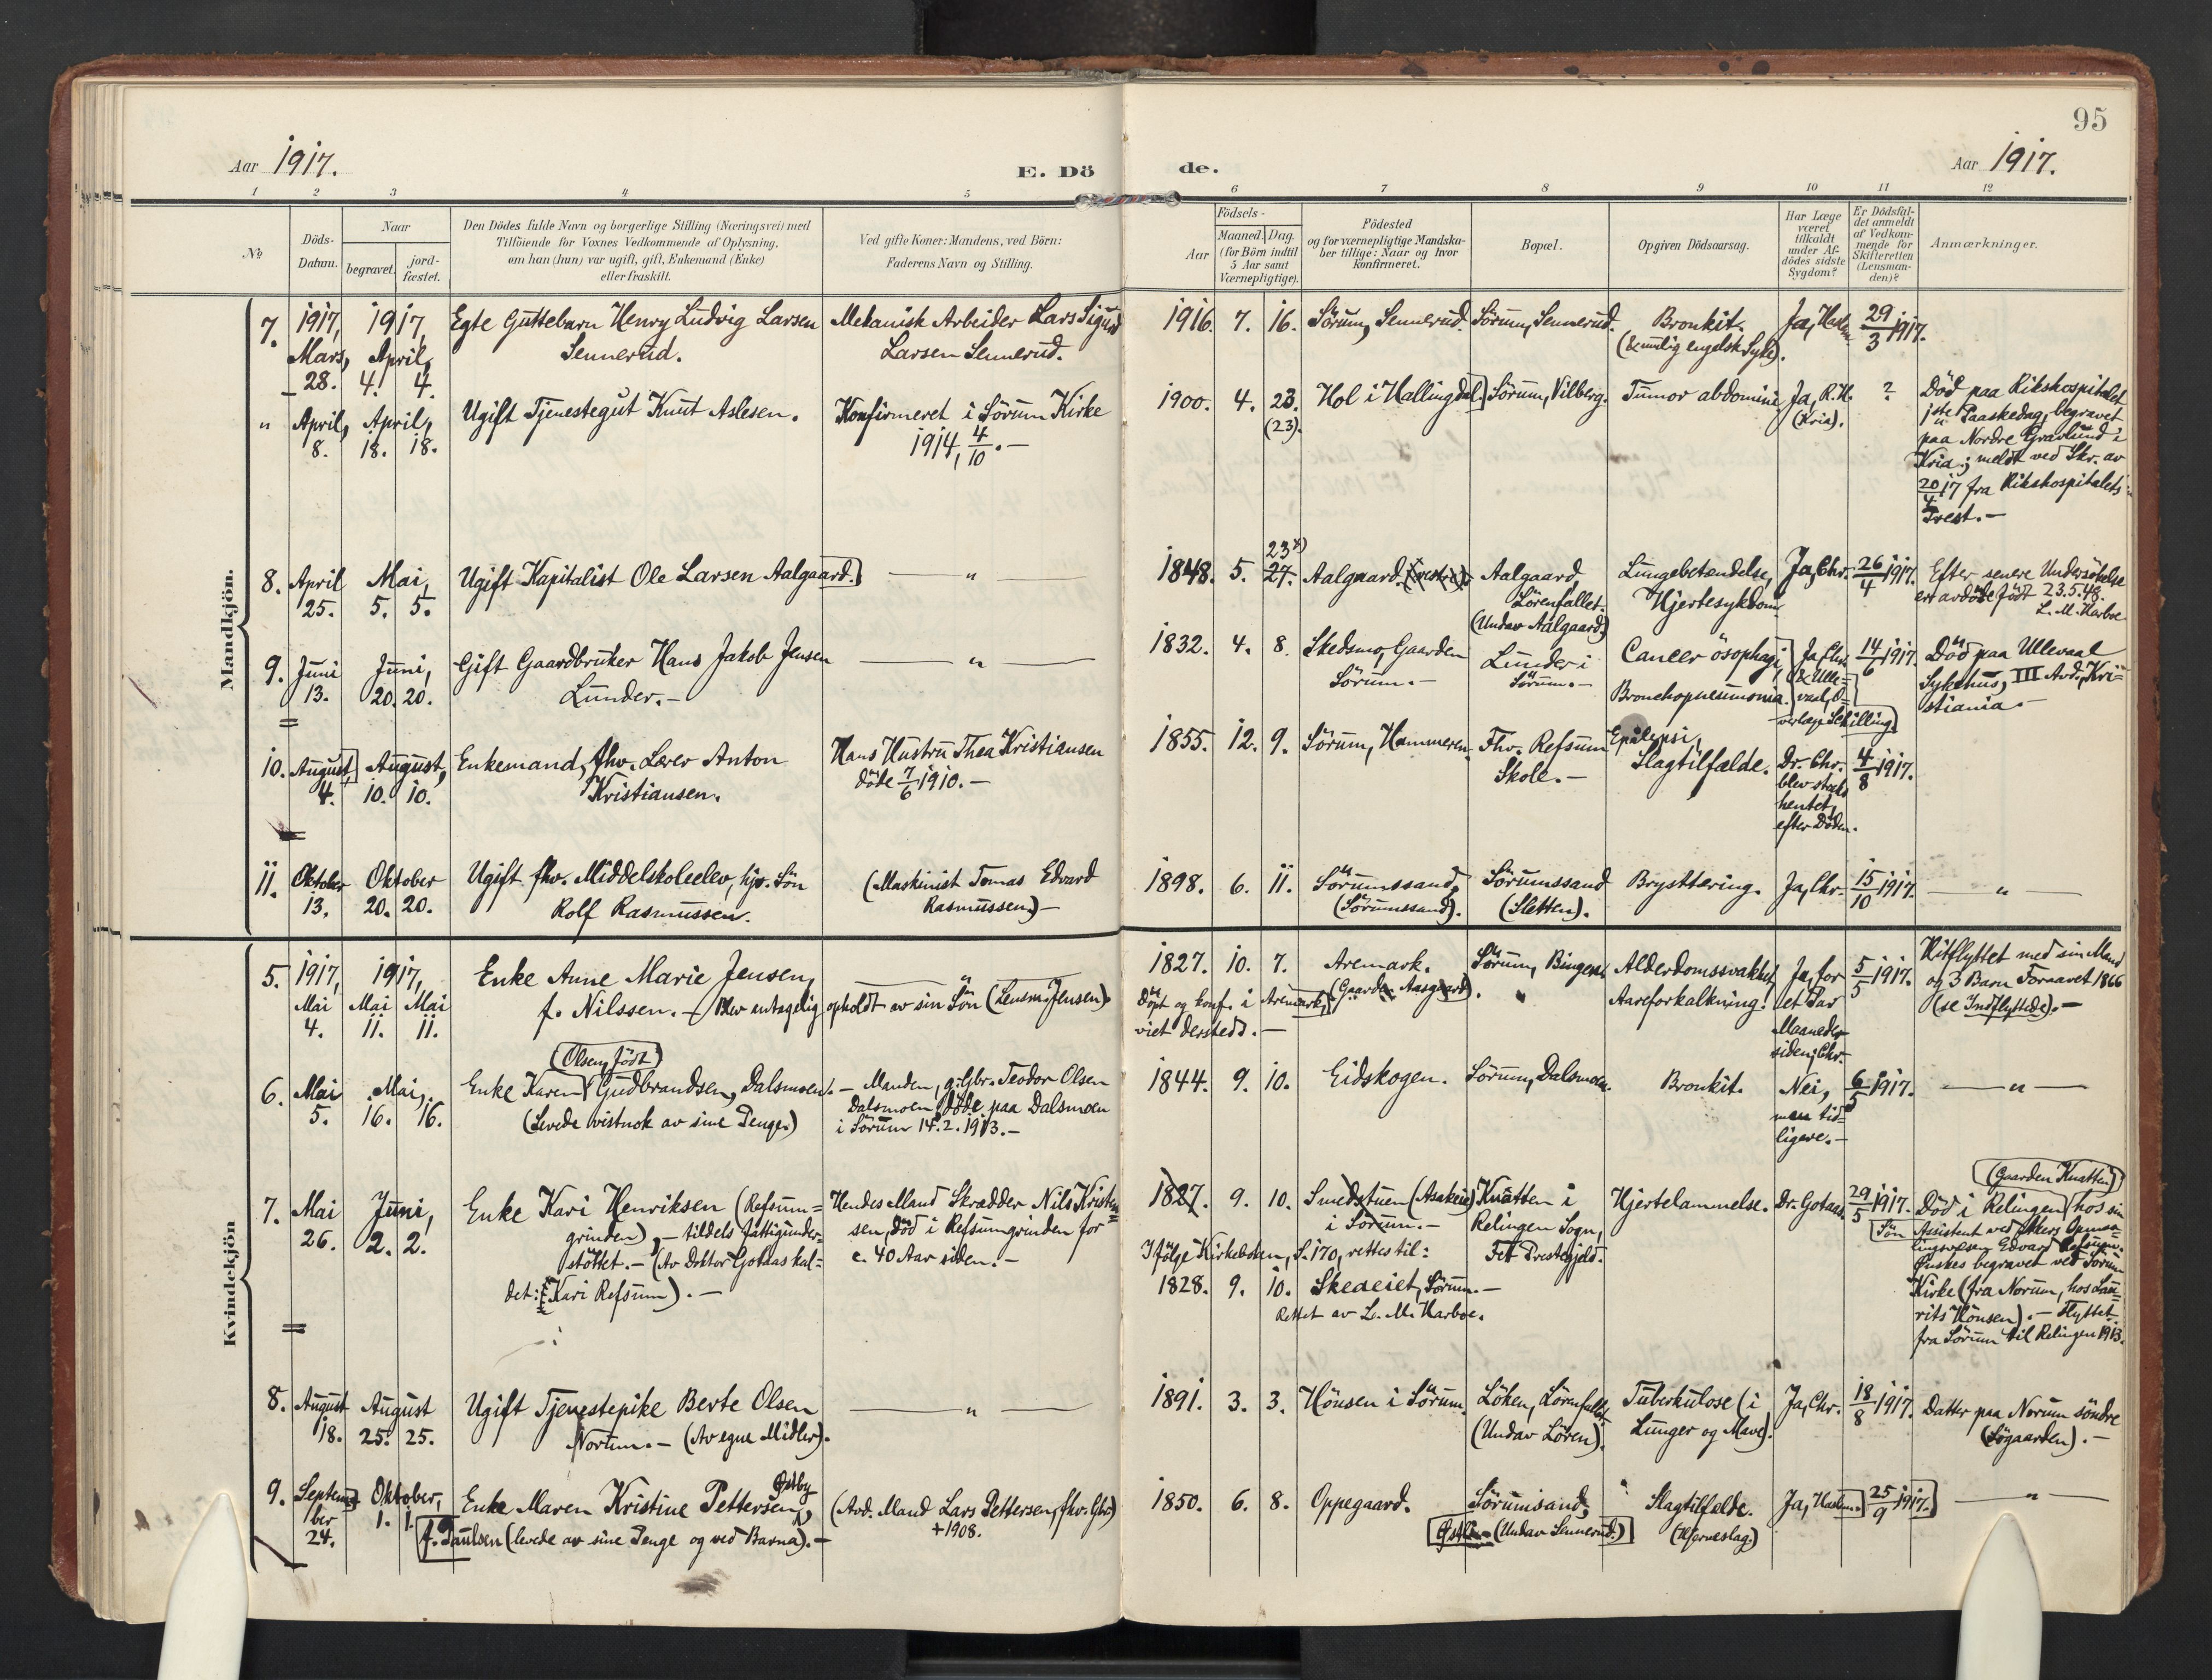 95
Aar 1917.
E. Dö de.
Aar 1917.
1 2 3 4 5 6 7 8 9 10 11 12
No
Döds-
Datum.
Naar
begravet.
jord-
fæstet.
Den Dödes fulde Navn og borgerlige Stilling (Næringsvei) med
Tilföiende for Voxnes Vedkommende af Oplysning,
om han (hun) var ugift, gift, Enkemand (Enke)
eller fraskilt.
Ved gifte Koner: Mandens, ved Börn:
Faderens Navn og Stilling.
Födsels-
Aar
Maaned.
Dag.
(for Börn indtil
5 Aar samt
Værnepligtige).
Födested
og for værnepligtige Mandska-
ber tillige: Naar og hvor
konfirmeret.
Bopæl.
Opgiven Dödsaarsag.
Har Læge
været
tilkaldt
under Af-
dödes sidste
Sygdom?
Er Dödsfal-
det anmeldt
af Vedkom-
mende for
Skifteretten
(Lensman-
den)?
Anmærkninger.
Mandkjön.
7.
1917,
Mars,
28.
1917,
April,
4. 4.
Egte Guttebarn Henry Ludvig Larsen
Sennerud.
Mekanisk Arbeider Lars Sigurd
Larsen Sennerud.
1916. 7. 16.
Sörum, Sennerud.
Sörum, Sennerud.
Bronkit.
(& mulig engelsk Syke).
Ja, Haslem
29/3 1917.
"
April,
8.
April,
18. 18.
Ugift Tjenestegut Knut Aslesen.
Konfirmeret i Sörum Kirke
1914, 4/10.—
1900. 4. 23.
(23).
Hol i Hallingdal.
Sörum, Vilberg.
Tumor abdominis
Ja, R.H.
(Kria).
?
Död paa Rikshospitalet
1ste Paaskedag, begravet
paa Nordre Gravlund i
Kria.; meldt ved Skr. av
20/4 17 fra Rikshospitalets
Prest.—
8.
April
25.
Mai,
5. 5.
Ugift Kapitalist Ole Larsen Aalgaard.
— " —
1848. 5. 27.
23x)
Aalgaard.
Aalgaard,
Lörenfallet.
(Undav Aalgaard)
Lungebetændelse,
Hjertesykdom
Ja, Chr.
26/4 1917.
Efter senere Undersökelse
er avdöde född 23.5.48.
L. M. Harboe
9.
Juni
13.
Juni,
20. 20.
Gift Gaardbruker Hans Jakob Jensen
Lunder.—
— " —
1832. 4. 8.
Skedsmo, Gaarden
Sörum.—
Lunder i
Sörum.—
Cancer ösophagi,
Bronchopneumonia.
Ja, Chr.
& Ulle=
vaal, O=
verlæge Schilling
14/6 1917.
Död paa Ullevaal
Sykehus, III Avd., Kri=
stiania.
10.
August,
4.
August,
10. 10.
Enkemand, fhv. Lærer Anton
Kristiansen.
Hans Hustru Thea Kristiansen
döde 7/6 1910.—
1855. 12. 9.
Sörum, Hammeren.
Fhv. Refsum
Skole.—
Epilepsi,
Slagtilfælde.
Dr. Chr.
blev straks
hentet,
efter Döden.
4/8 1917.
11.
Oktober
13.
Oktober
20. 20.
Ugift fhv. Middelskoleelev, hjv. Sön
Rolf Rasmussen.
(Maskinist Tomas Edvard
Rasmussen)—
1898. 6. 11.
Sörumssand,
(Sörumssand).
Sörumssand
(Sletten).
Brysttæring.
Ja, Chr.
15/10 1917.
— " —
Kvindekjön
5.
1917,
Mai
4.
1917,
Mai Mai
11. 11.
Enke Anne Marie Jensen,
f. Nilssen.—
(Blev antagelig opholdt av sin Sön (Lensm. Jensen).
— " —
1827. 10. 7.
Aremark.
(Gaarden Aasgaard).
Döpt og konf. i Aremark,
viet dersteds.—
Sörum, Bingens
Alderdomssvakhet,
Aareforkalkning.
Ja, for
et Par
Maaneder
siden; Chr.
5/5 1917.
Hitflyttet med sin Mand
og 3 Barn Foraaret 1866
(se Indflyttede).—
6.
Mai
5.
Mai,
16. 16.
(Olsen, född)
Enke Karen Gudbrandsen, Dalsmoen.
(Levede vistnok av sine Penge.)
— Manden, g. Gbr. Teodor Olsen
Dalsmoen, döde paa Dalsmoen
i Sörum 14.2.1913.—
1844. 9. 10.
Eidskogen.
Sörum, Dalsmoen.
Bronkit.
Nei,
men tid=
ligere.—
6/5 1917.
— " —
7.
Mai
26.
Juni,
2. 2.
Enke Kari Henriksen (Refsum=
grinden),— tildels fattigunder=
stöttet.— (Av Doktor Gotaas kal=
det: Kari Refsum).—
Hendes Mand Skrædder Nils Kristen=
sen, död i Refsumgrinden for
c. 40 Aar siden.—
1827. 9. 10.
Smedstuen (Asakeie)
i Sörum.—
Ifölge Kirkeboken, S. 170, rettes til:
1828. 9. 10. Skeaeiet, Sörum.—
Rettet av L. M. Harboe.
Knatten i
Relingen Sogn,
Fet Prestegjeld.
Hjertelammelse.
Dr. Gotaas.
29/5 1917.
(Gaarden Knatten)
Död i Relingen hos sin
Sön Assistent ved Akers Opmaa=
lingsvæsen Edvard Refsum.
Ønskes begravet ved Sörum
Kirke (fra Norum, hos Lau=
rits Hönsen).— Flyttet
fra Sörum til Relingen 1913.
8.
August
18.
August
25. 25.
Ugift Tjenestepike Berte Olsen
Norum.— (Av egne Midler).
— " —
1891. 3. 3.
Hönsen i Sörum.
Löken, Lörenfallet
(Undav Lören).
Tuberkulose (i
Lunger og Mave).
Ja, Chr.
18/8 1917.
Datter paa Norum söndre
(Sögaarden).—
9.
Septem=
ber
24.
Oktober,
1. 1.
Enke Maren Kristine Pettersen, Østby
f. Paulsen (levede av sine Penge og ved Barna).—
(Avd. Mand Lars Pettersen, fhv. Gbr.)
+1908.
1850. 6. 8.
Oppegaard.
Sörumsand,
Østby (Undav Sennerud.)
Slagtilfelde.
(Hjerneslag.)
Ja, Haslem.
25/9 1917.
— " —